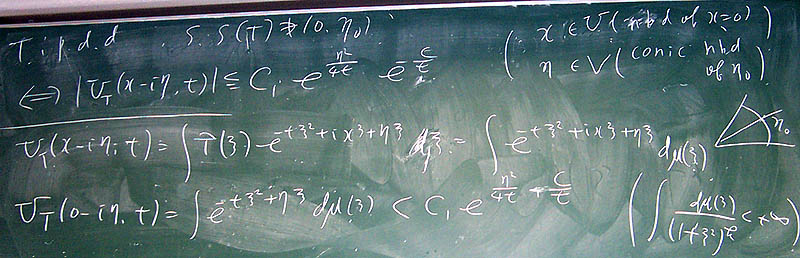 T. i. p. d. d   S. S (T) ∌ (0, η₀)
⟺ |U_T(x-iη, t)| ≦ C₁ e^{η²/4t} e^{-c/t}   ( x ∈ U (nbd of x=0)
η ∈ V ( conic nbd of η₀ )
U_T(x-iη, t) = ∫ T̂(ξ) e^{-tξ²+ixξ+ηξ} dξ = ∫ e^{-tξ²+ixξ+ηξ} dμ(ξ)   η₀
U_T(0-iη, t) = ∫ e^{-tξ²+ηξ} dμ(ξ) < C₁ e^{η²/4t - c/t}   ( ∫ dμ(ξ)/(1+ξ²)^k < +∞ )